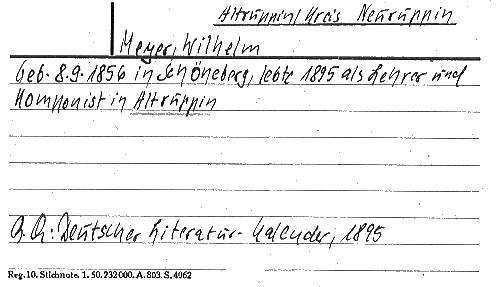 Altruppin/Kreis Neuruppin
Meyer, Wilhelm
geb. 8.9.1856 in Schöneberg, lebte 1895 als Lehrer und
Komponist in Altruppin
Deutscher Literatur-Kalender, 1895
Reg. 10. Stichnote. 1. 50. 232000. A. 803. S. 4062